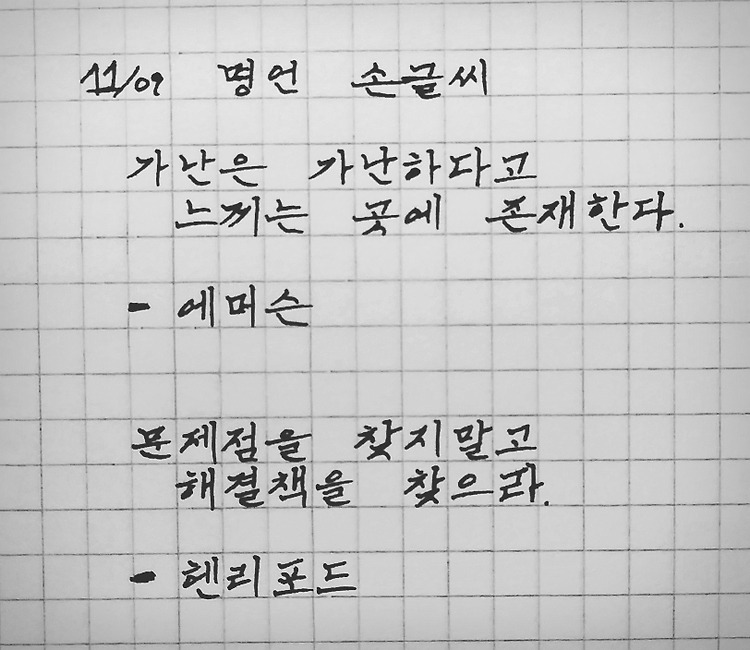 11/09 명언 손글씨
가난은 가난하다고
느끼는 곳에 존재한다.
- 에머슨
문제점을 찾지말고
해결책을 찾으라.
- 헨리포드